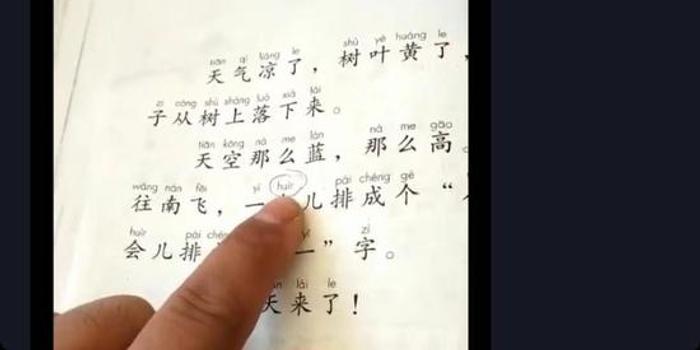 tiān qì liáng le shù yè huáng le
天气凉了，树叶黄了，
zi cóng shù shàng luò xià lái
子从树上落下来。
tiān kōng nà me lán nà me gāo
天空那么蓝，那么高。
wǎng nán fēi yí huìr pái chéng gè
往南飞，一 儿排成个“
huìr pái zì
会儿排 一”字。
lái le
天来了！